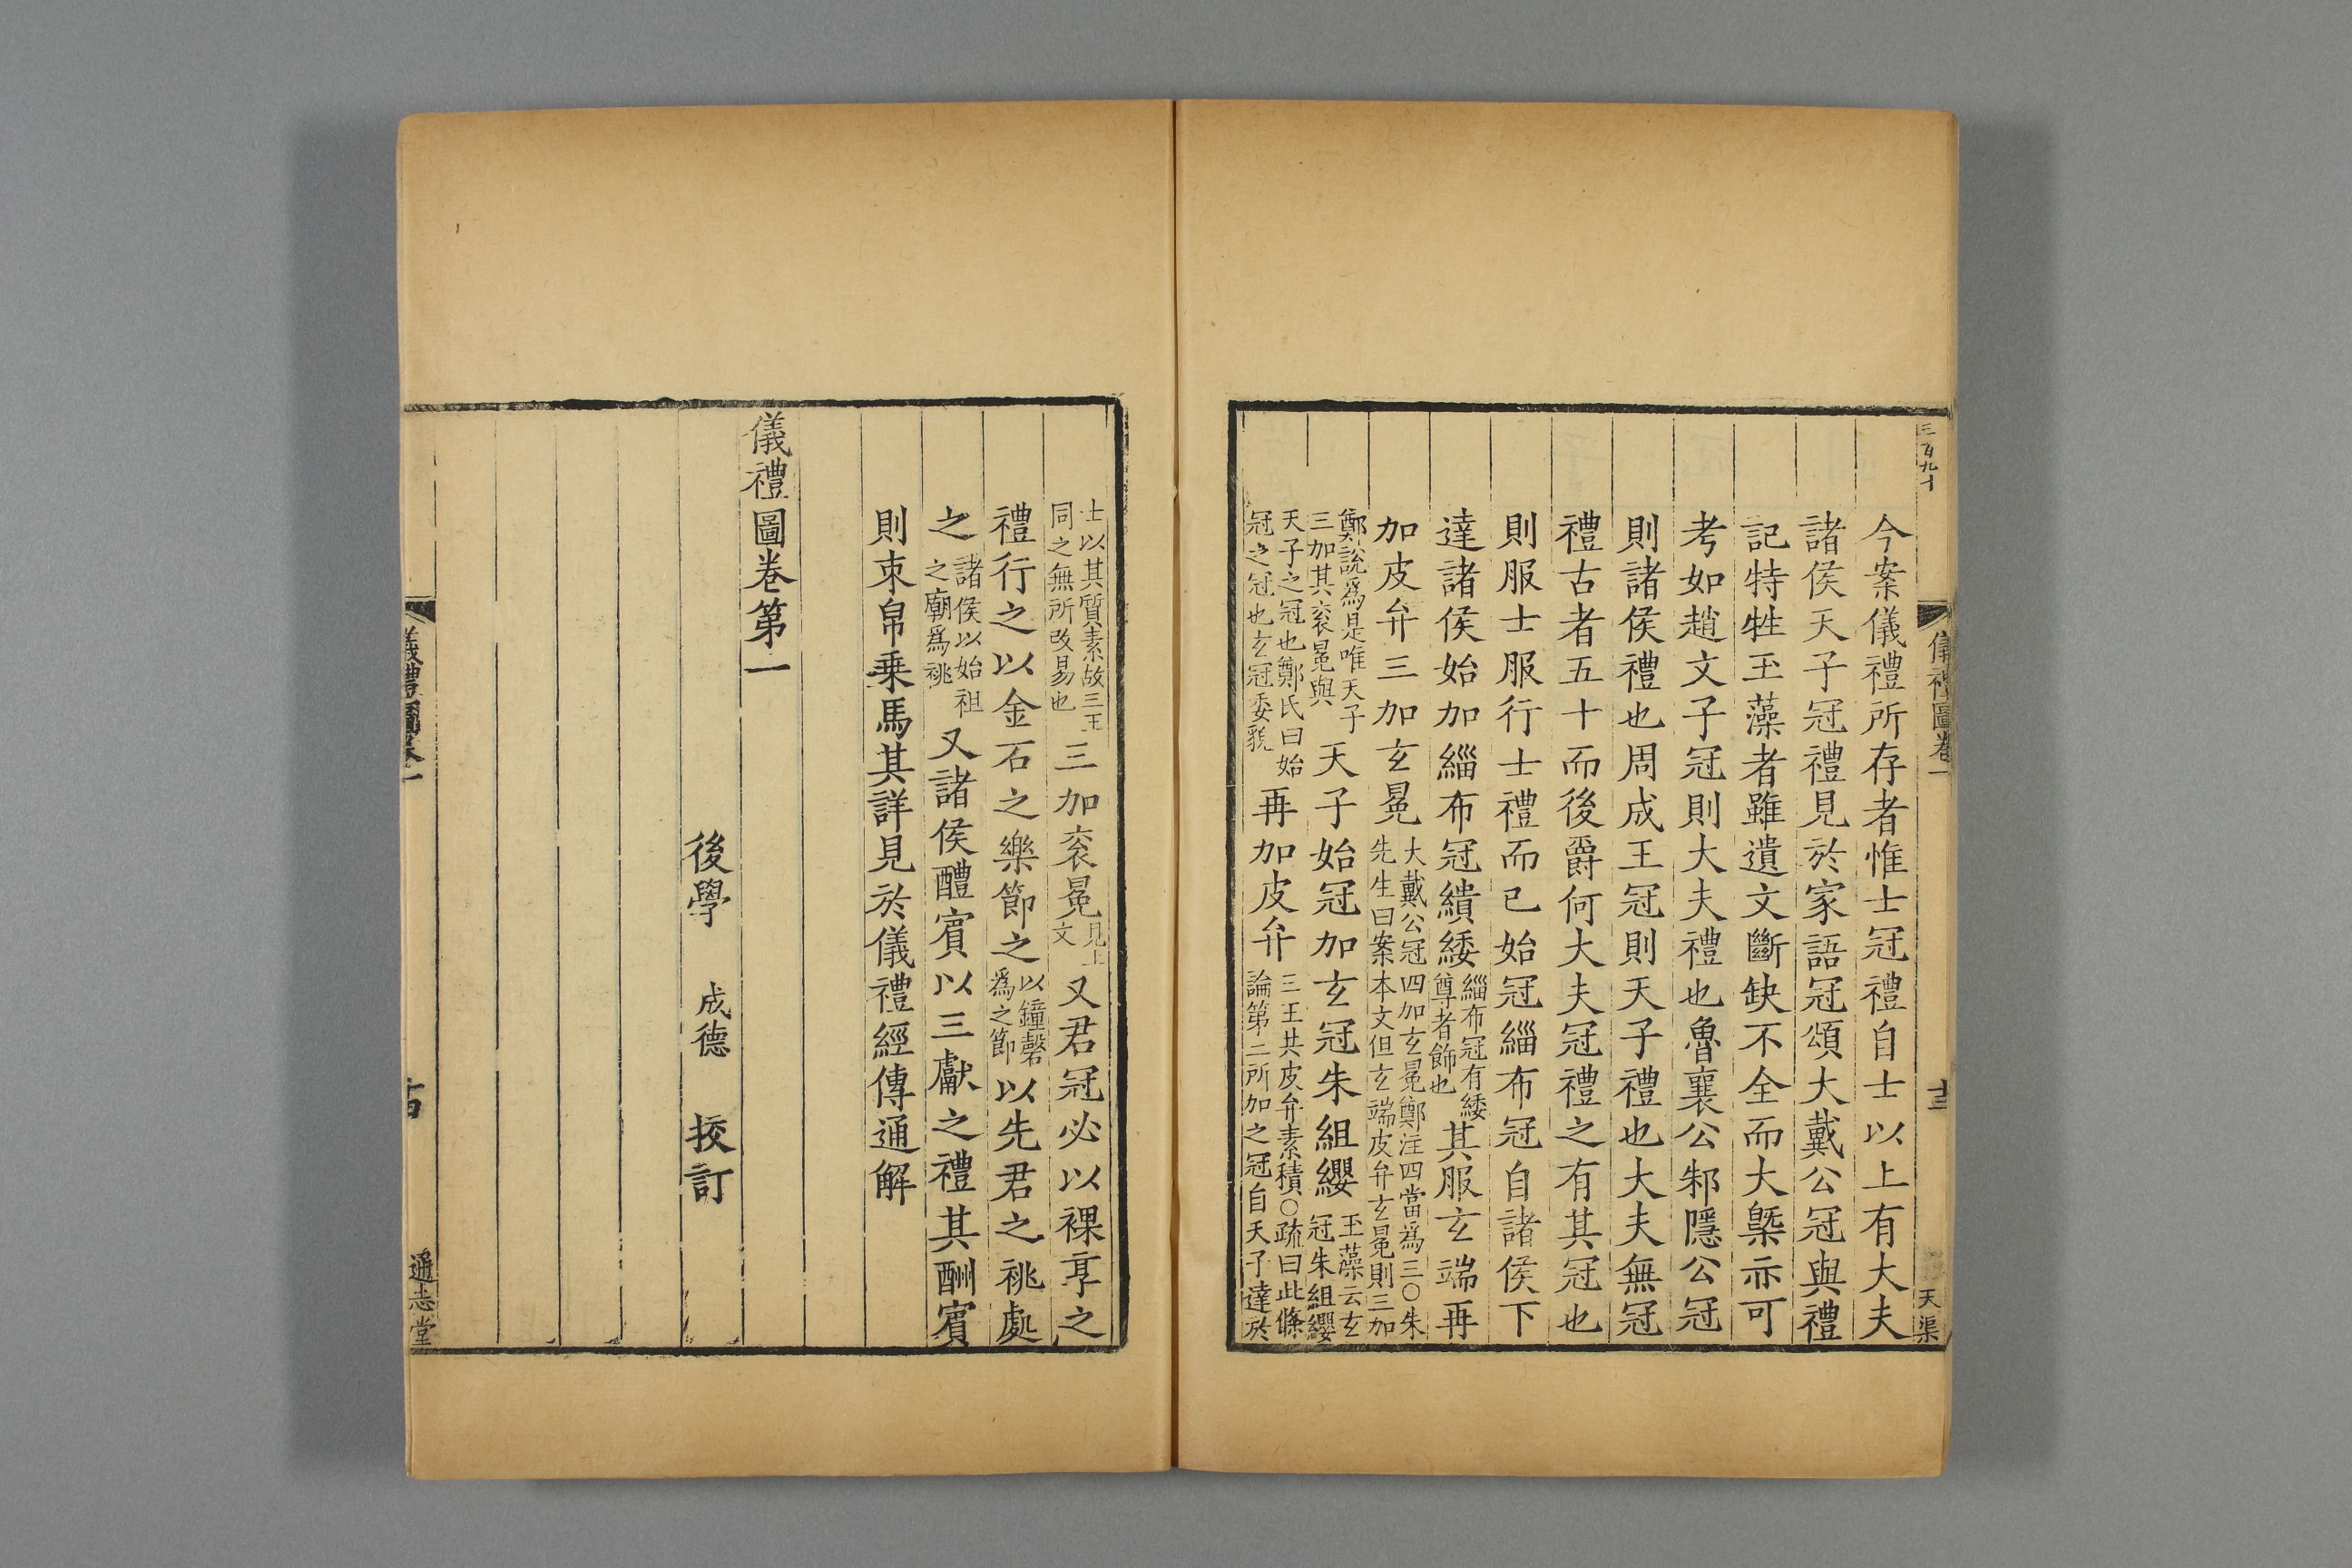 三百九十
儀禮圖卷一
十三
天渠
今案儀禮所存者惟士冠禮自士以上有大夫
諸侯天子冠禮見於家語冠頌大戴公冠與禮
記特牲玉藻者雖遺文斷缺不全而大槩亦可
考如趙文子冠則大夫禮也魯襄公邾隱公冠
則諸侯禮也周成王冠則天子禮也大夫無冠
禮古者五十而後爵何大夫冠禮之有其冠也
則服士服行士禮而已始冠緇布冠自諸侯下
達諸侯始加緇布冠繢緌緇布冠有緌尊者飾也其服玄端再
加皮弁三加玄冕大戴公冠四加玄冕鄭注四當爲三○朱先生曰案本文但玄端皮弁玄冕則三加
鄭說爲是唯天子三加其衮冕與天子始冠加玄冠朱組纓玉藻云玄冠朱組纓
天子之冠也鄭氏曰始冠之冠也玄冠委貌再加皮弁三王共皮弁素積○疏曰此條論第二所加之冠自天子達於
士以其質素故三王同之無所改易也三加衮冕見上文又君冠必以祼享之
禮行之以金石之樂節之以鐘磬爲之節以先君之祧處
之諸侯以始祖之廟爲祧又諸侯醴賓以三獻之禮其酬賓
則束帛乗馬其詳見於儀禮經傳通解
儀禮圖卷第一
後學 成德 挍訂
儀禮圖卷一
十四
通志堂